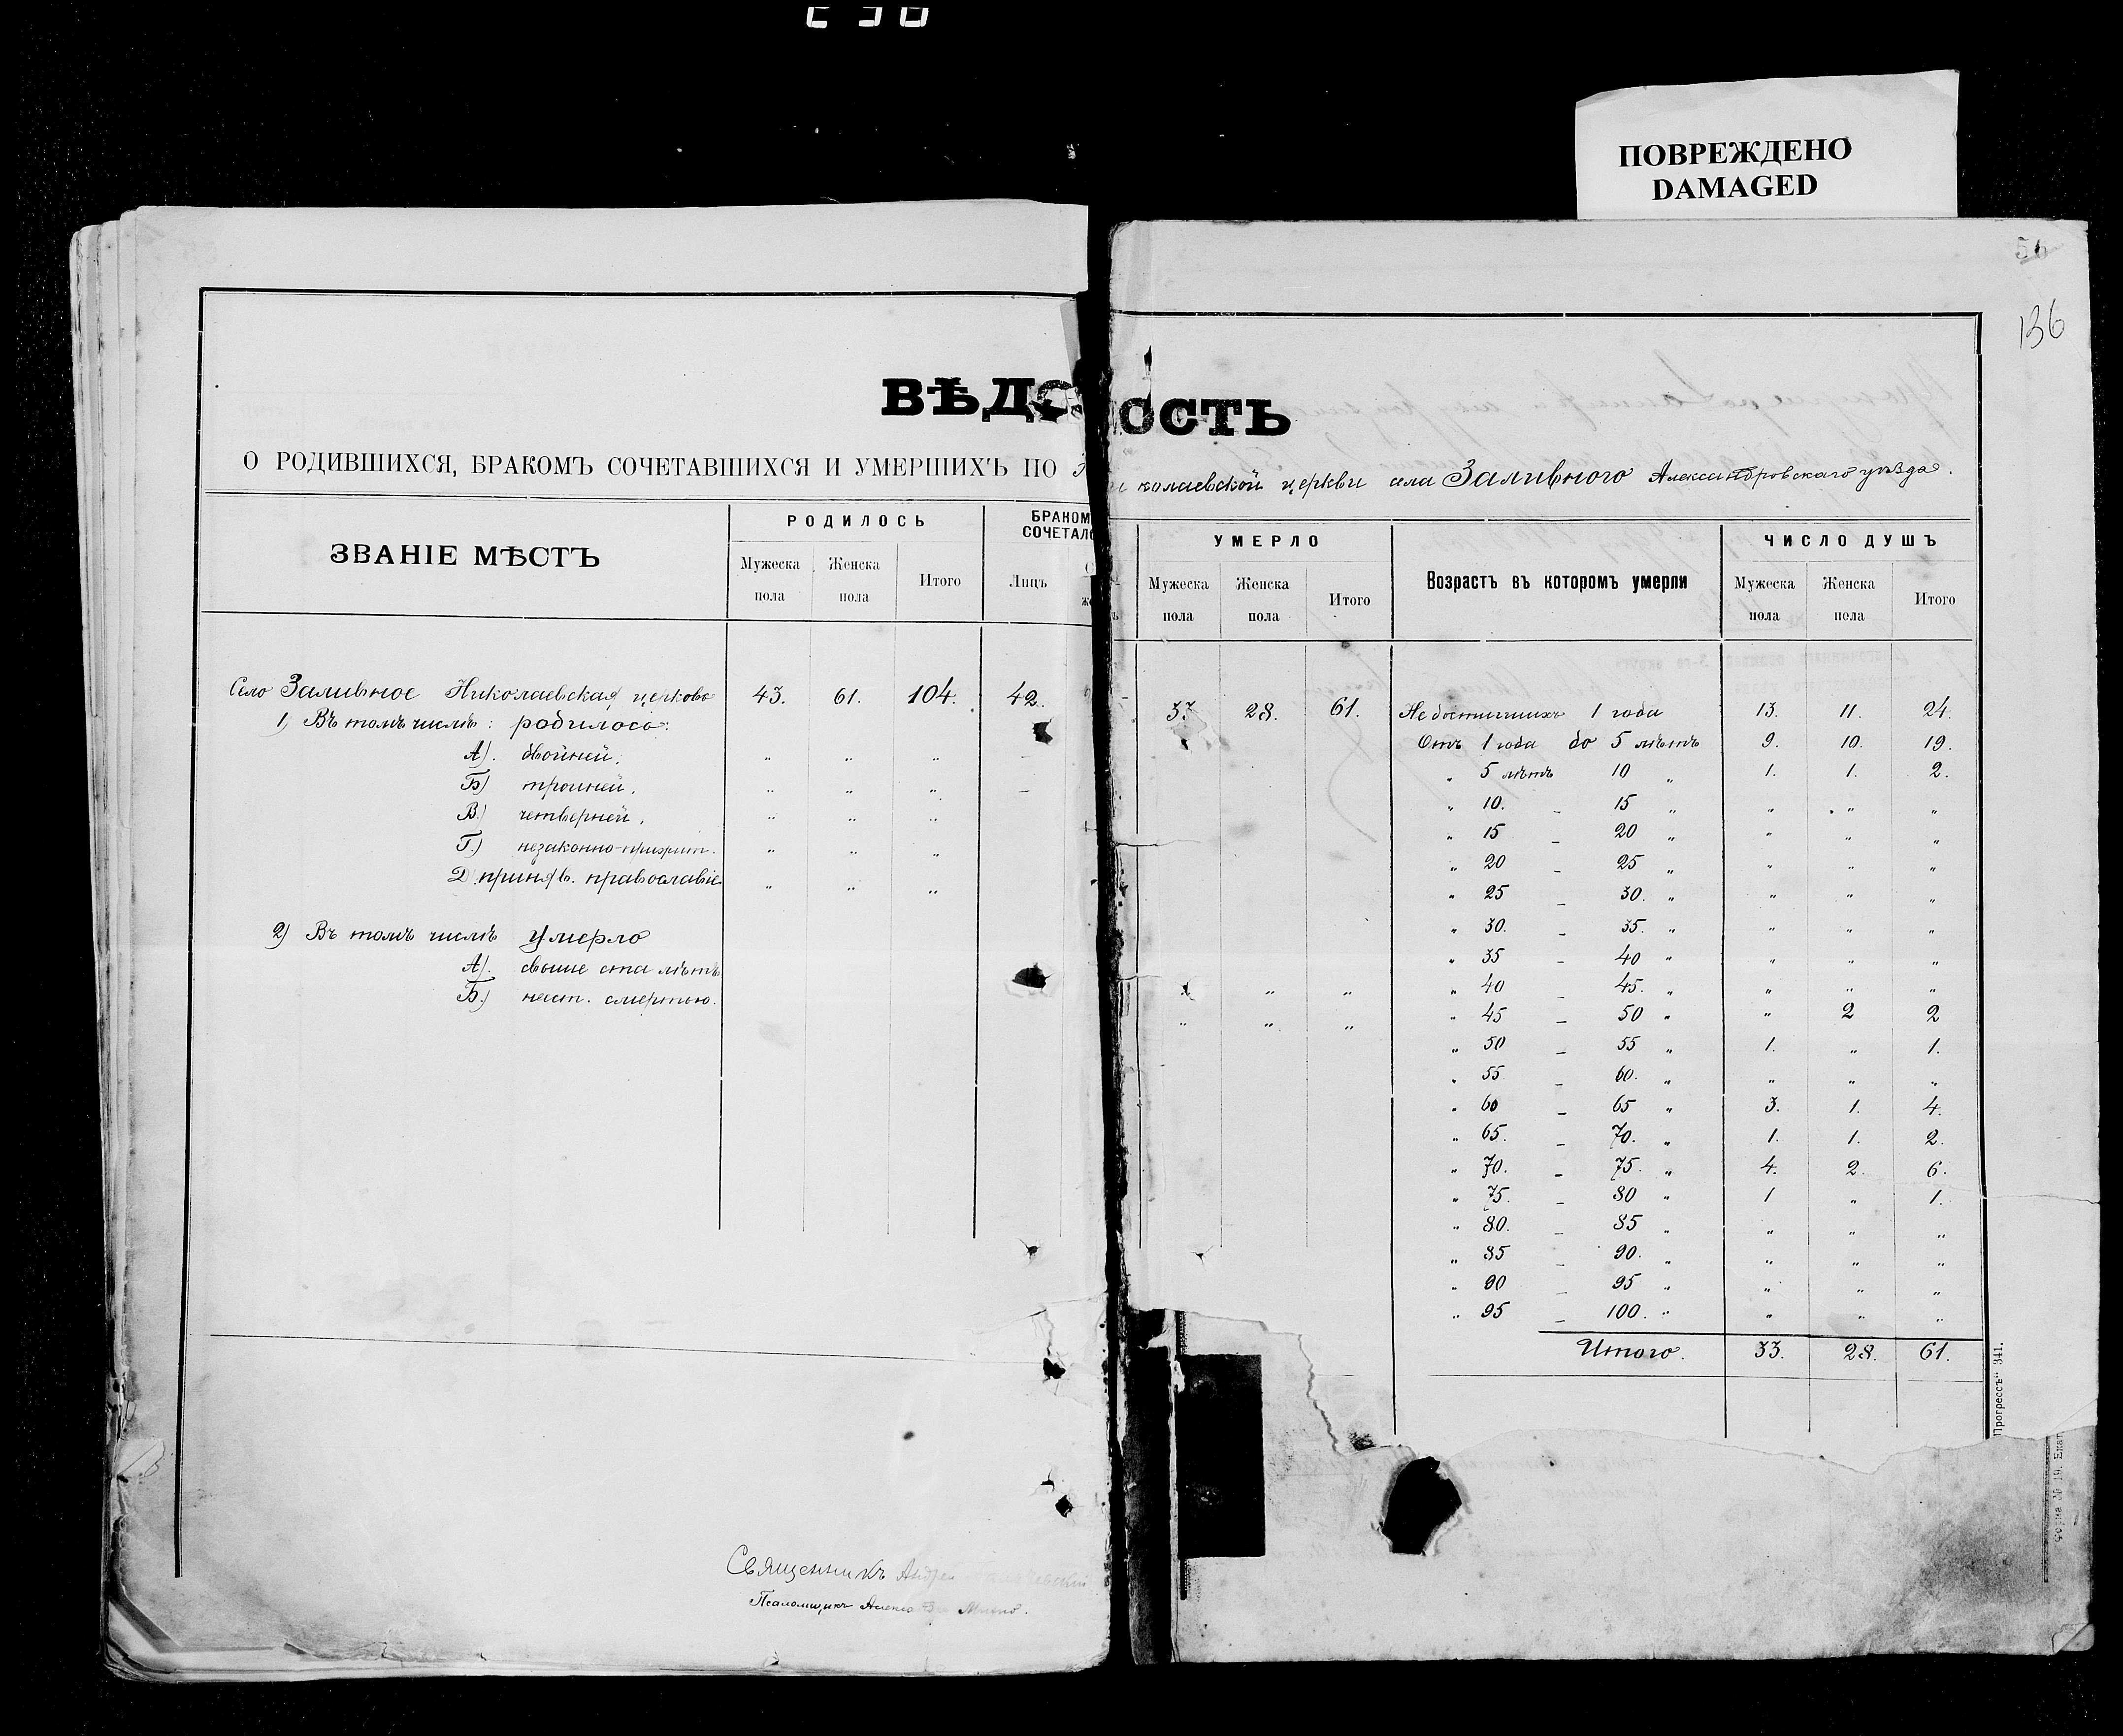 ПОВРЕЖДЕНО
DAMAGED
136
ВѢДО ОСТЬ
О РОДИВШИХСЯ, БРАКОМЪ СОЧЕТАВШИХСЯ И УМЕРШИХЪ ПО Николаевской церкви села Заливного Александровскаго уѣзда.
ЗВАНІЕ МѢСТЪ
РОДИЛОСЬ
Мужеска пола
Женска пола
Итого
БРАКОМ
СОЧЕТАЛО
Лицъ
УМЕРЛО
Мужеска пола
Женска пола
Итого
Возрастъ въ которомъ умерли
ЧИСЛО ДУШЪ
Мужеска пола
Женска пола
Итого
Село Заливное Николаевская церковь 43. 61. 104. 42. 33 28. 61.
1) Въ томъ числѣ: родилось:
А). двойней. " " " –
Б) тройней. " " " –
В.) четверней. " " "
Г.) незаконно-прижит. " " "
Д) приняв. православіе " " "
2) Въ томъ числѣ умерло
А). свыше ста лѣтъ " " "
Б.) насл. смертью. " " "
Недостигшихъ 1 года 13. 11. 24.
Отъ 1 года до 5 лѣтъ 9. 10. 19.
" 5 лѣтъ 10 " 1. 1. 2.
" 10. – 15 " " " "
" 15 – 20 " " " "
" 20 – 25 " " " "
" 25 – 30. " " " "
" 30. – 35. " " " "
" 35 – 40 " " " "
" 40 – 45. " " " "
" 45 – 50 " " 2 2
" 50 – 55 " 1. " 1.
" 55 – 60. " " " "
" 60 – 65 " 3. 1. 4.
" 65. – 70. " 1. 1. 2.
" 70. – 75. " 4. 2. 6.
" 75. – 80 " 1 " 1.
" 80. – 85 " " " "
" 85 – 90. " " " "
" 90 – 95 " " " "
" 95 – 100. " " " "
Итого. 33. 28. 61.
Священникъ Андрей
Псаломщикъ
Прогрессъ" 341.
Форма № 19. Екат